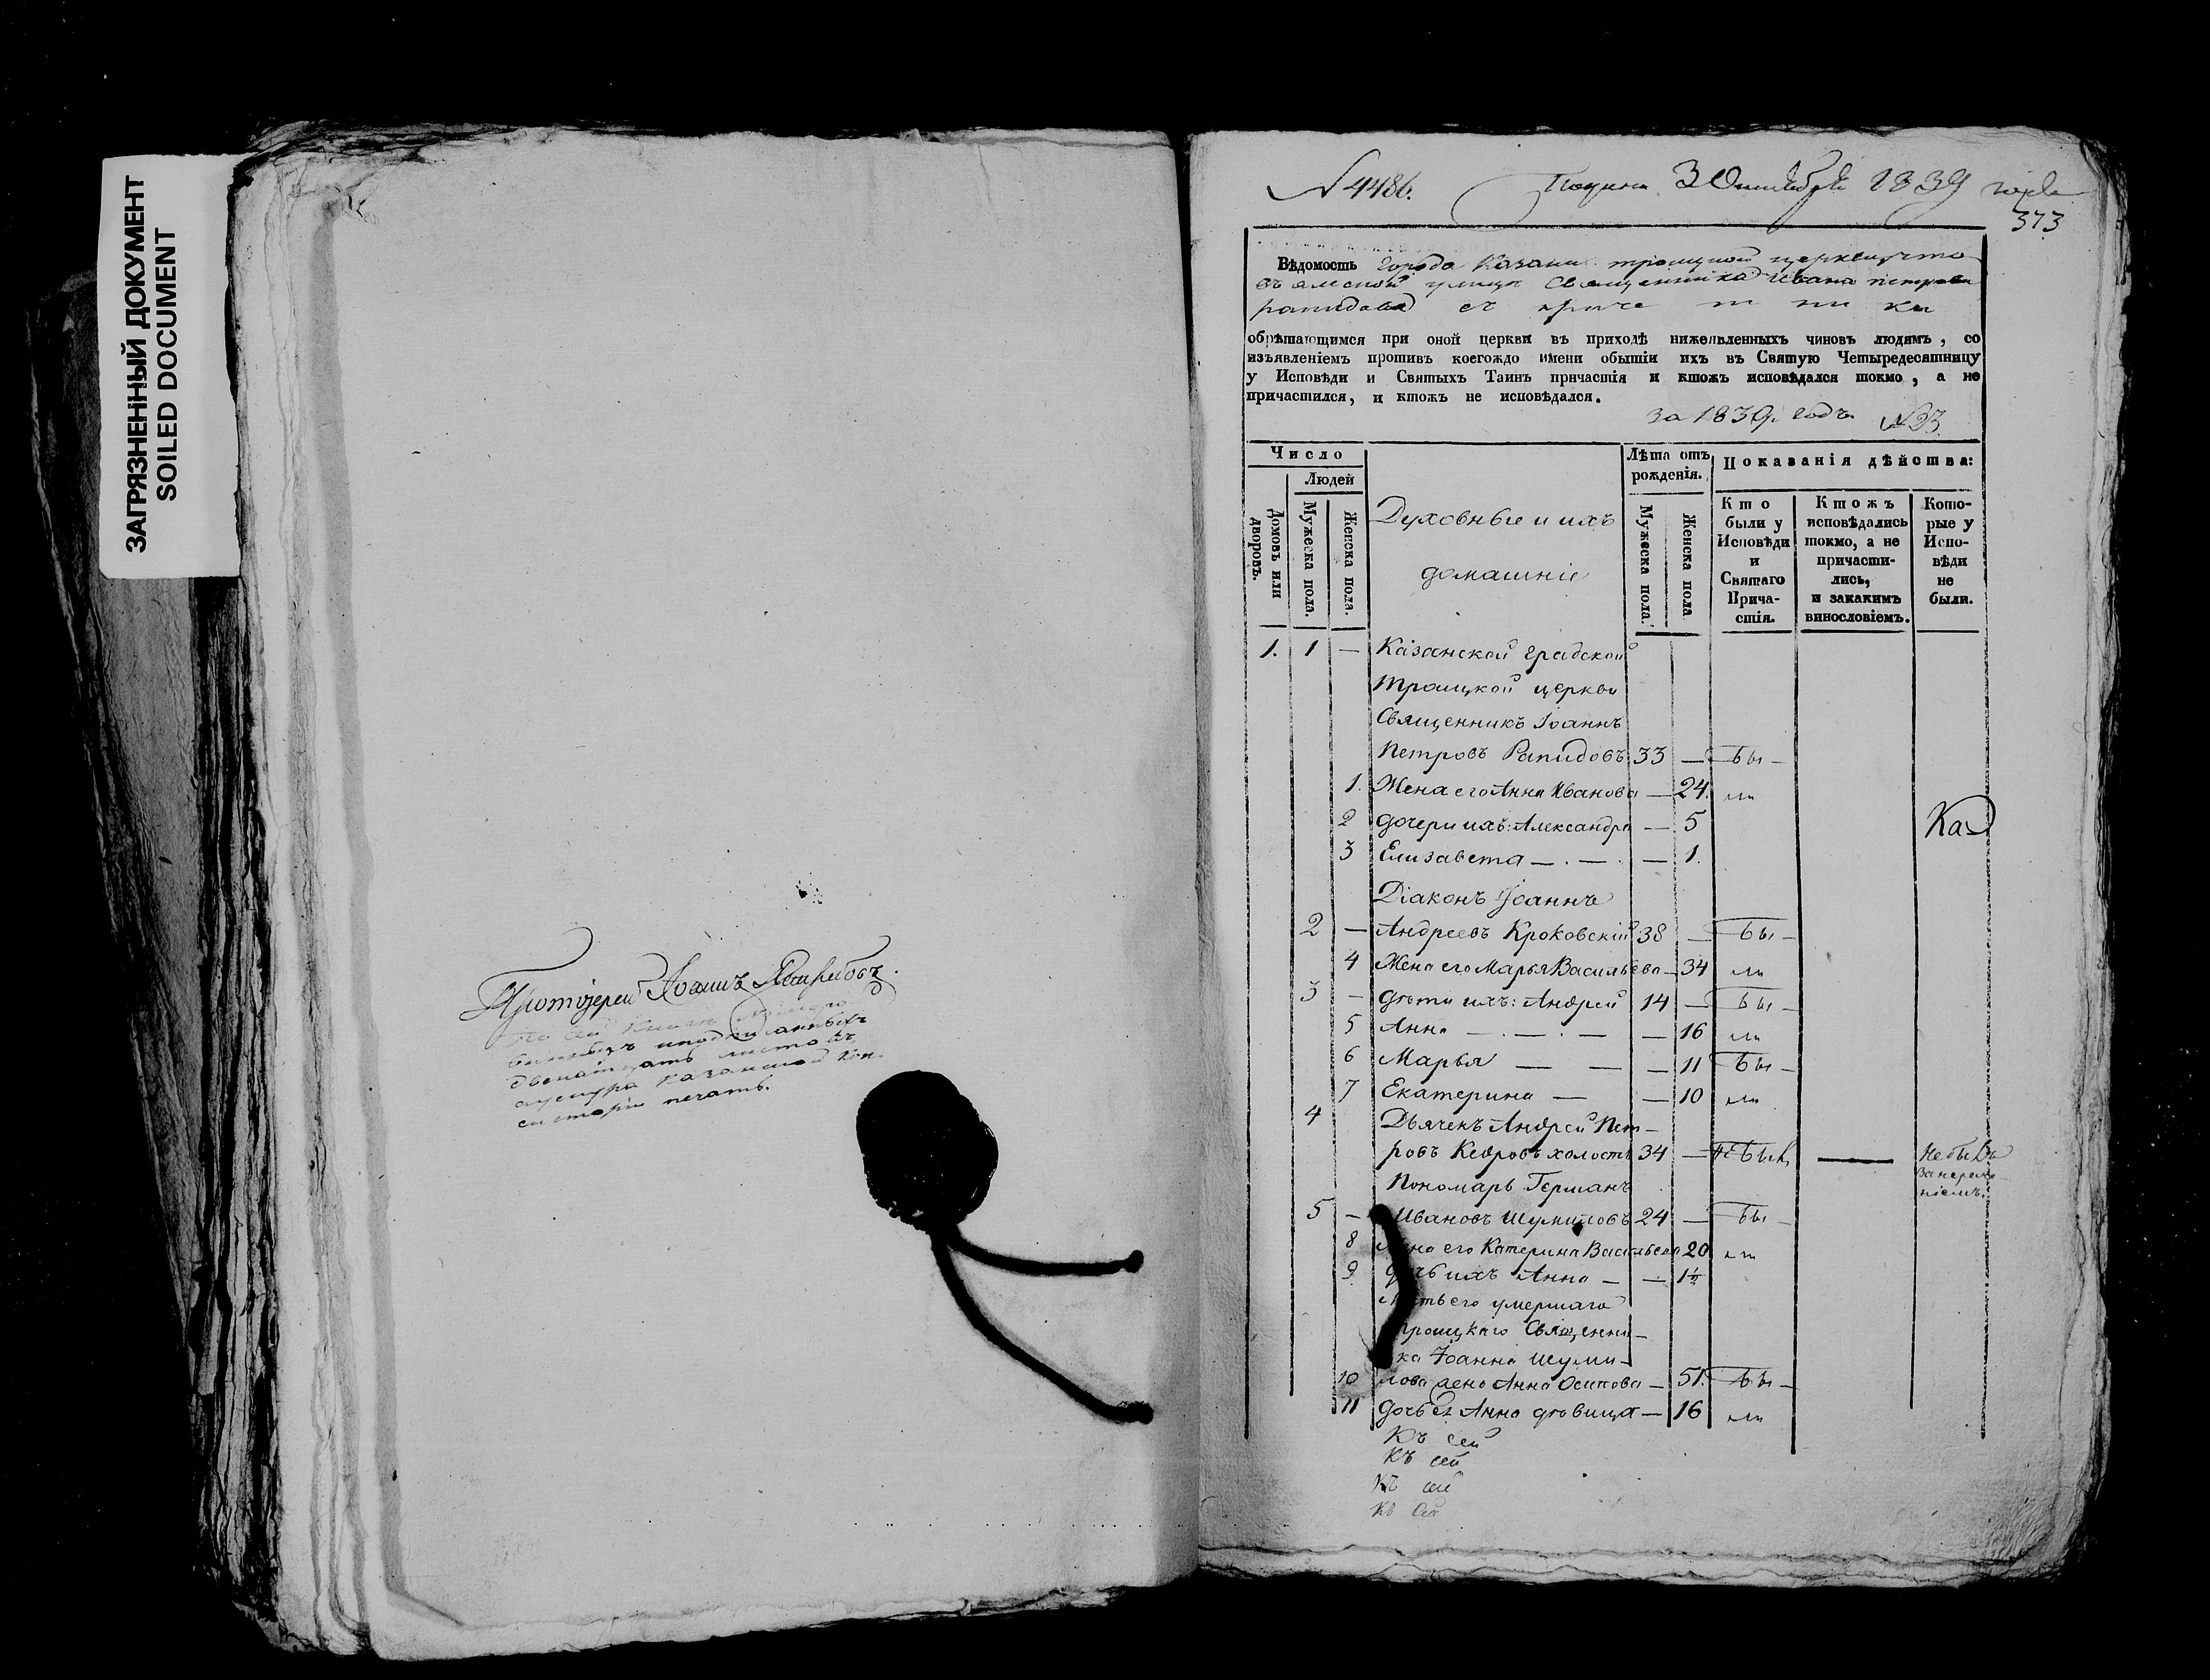 ЗАГРЯЗНЕННЫЙ ДОКУМЕНТ
SOILED DOCUMENT
Протоіерей Іоаннъ
двенатцать листовъ
Казанской Кон
систоріи печать.
N 4486.
3 Октября 1839 года
373
Вѣдомость Города Казани троицкой церкви что
въ ямской улице Священника Ивана петрова
рапидова съ приче т ни ки
обрѣтающимся при оной церкви въ приходѣ нижеявленныхъ чиновъ людямъ, со
изъявленіемъ противъ коегождо имени обытіи ихъ въ Святую Четыредесятницу
у Исповѣди и Святыхъ Таинъ причастія и ктожъ исповѣдался токмо, а не
причастился, и ктожъ не исповѣдался.
за 1839. годъ N 23
Число
Людей
Домовъ или дворовъ.
Мужеска пола.
Женска пола.
Духовные и ихъ
домашніе
Лѣта отъ рожденія.
Мужеска пола.
Женска пола
Показанія дѣйства:
Кто были у Исповѣди и Святаго Прича- стія.
Ктожъ исповѣдались токмо, а не причасти- лись, и закакимъ винословіемъ.
Кото- рые у Испо- вѣди не были.
1. 1 — Казанской градской
Троицкой церкви
Священникъ Іоаннъ
Петровъ Рапидовъ 33 — бы —
1. Жена его Анна Иванова — 24. ли
2 Дочери ихъ: Александра — 5
3 Елизавета — . — . — 1.
Діаконъ Іоаннъ
2 — Андреевъ Кроковскій 38 — бы —
4 Жена его Марья Васильева — 34 ли
3 — Дѣти ихъ: Андрей 14 — бы —
5 Анна — . — . — — 16 ли
6 Марья — — — 11 бы —
7 Екатерина — — 10 ли
4 Дьячекъ Андрей Пет-
ровъ Кедровъ холостъ 34 — —
Пономарь Германъ
5 — Ивановъ Шумиловъ 24 — бы —
8 его Катерина Васильева 20 ли
9 ихъ Анна — — 1½
его умершаго
троицкаго Священни-
ка Іоанна Шуми-
10 лова жена Анна Осипова — 51. бы —
11 Дочь ея Анна дѣвица — 16 ли
Къ сей
Къ сей
Къ сей
Къ сей